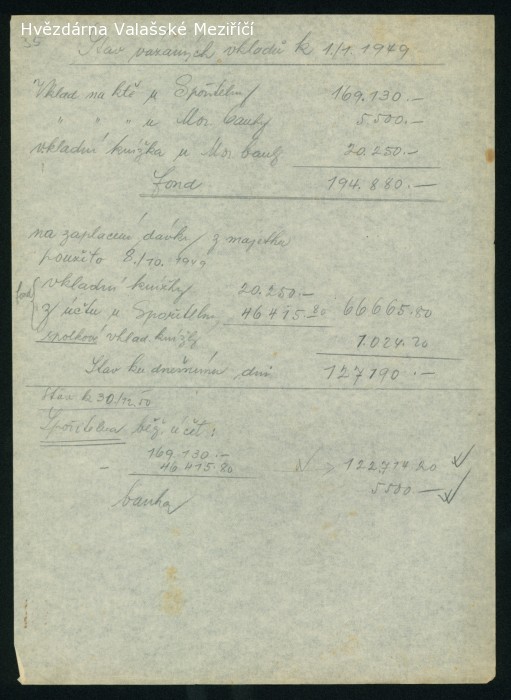 Hvězdárna Valašské Meziříčí
Stav vázaných vkladů k 1/1. 1949
Vklad na ktě u Spořitelny 169.130.-
" " " u Mor. banky 5.500.-
vkladní knížka u Mor. bank 20.250.-
Fond 194.880.-
na zaplacení dávky z majetku
použito 8./10. 1949
fond vkladní knížky 20.250.-
z účtu u Spořitelny 46 415.80 66665.80
spolková vklad. knížky 1.024.20
Stav ku dnešnímu dni 127190.-
Stav k 30/12.50
Spořitelna běž. účet:
169.130.-
- 46.415.80 122714.20
banka 5500.-